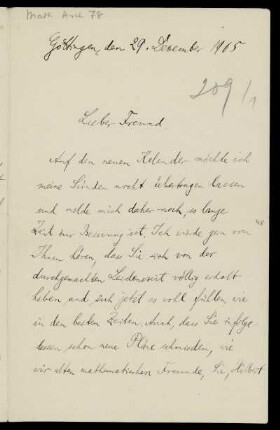 Math Arch 78
Göttingen, den 29. Dezember 1905
209/1
Lieber Freund
Auf den neuen Kalender möchte ich
meine Sünden nicht übertragen lassen
und melde mich daher noch, so lange
Zeit zur Besserung ist. Ich würde gern von
Ihnen hören, dass Sie sich von der
durchgemachten Leidenszeit völlig erholt
haben und sich jetzt so wohl fühlen wie
in den besten Zeiten. Auch, dass Sie infolge-
dessen schon neue Pläne schmieden, wie
wir alten mathematischen Freunde, Sie, Hilbert